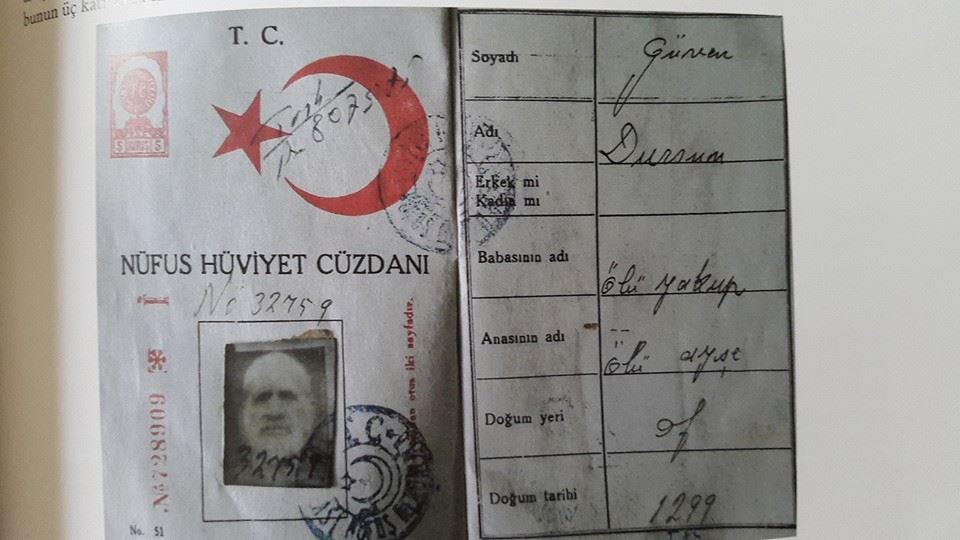 bunun üç katı
T. C.
5 5
8075
NÜFUS HÜVİYET CÜZDANI
No 32759
No 728909
otuz iki sayfadır.
32759
T.C.
No. 51
Soyadı Güven
Adı Dursun
Erkek mi
Kadın mı
Babasının adı Ölü yakup
Anasının adı Ölü ayşe
Doğum yeri of
Doğum tarihi 1299